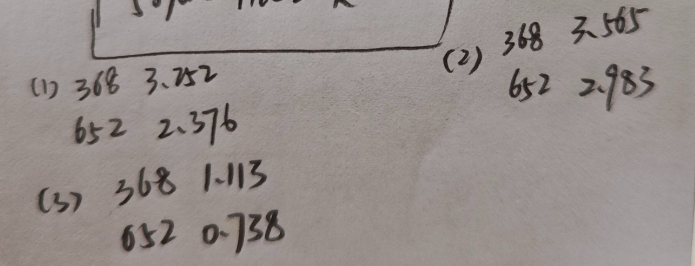 (1) 368 3.252
652 2.376
(2) 368 3.565
652 2.983
(3) 368 1.113
652 0.738